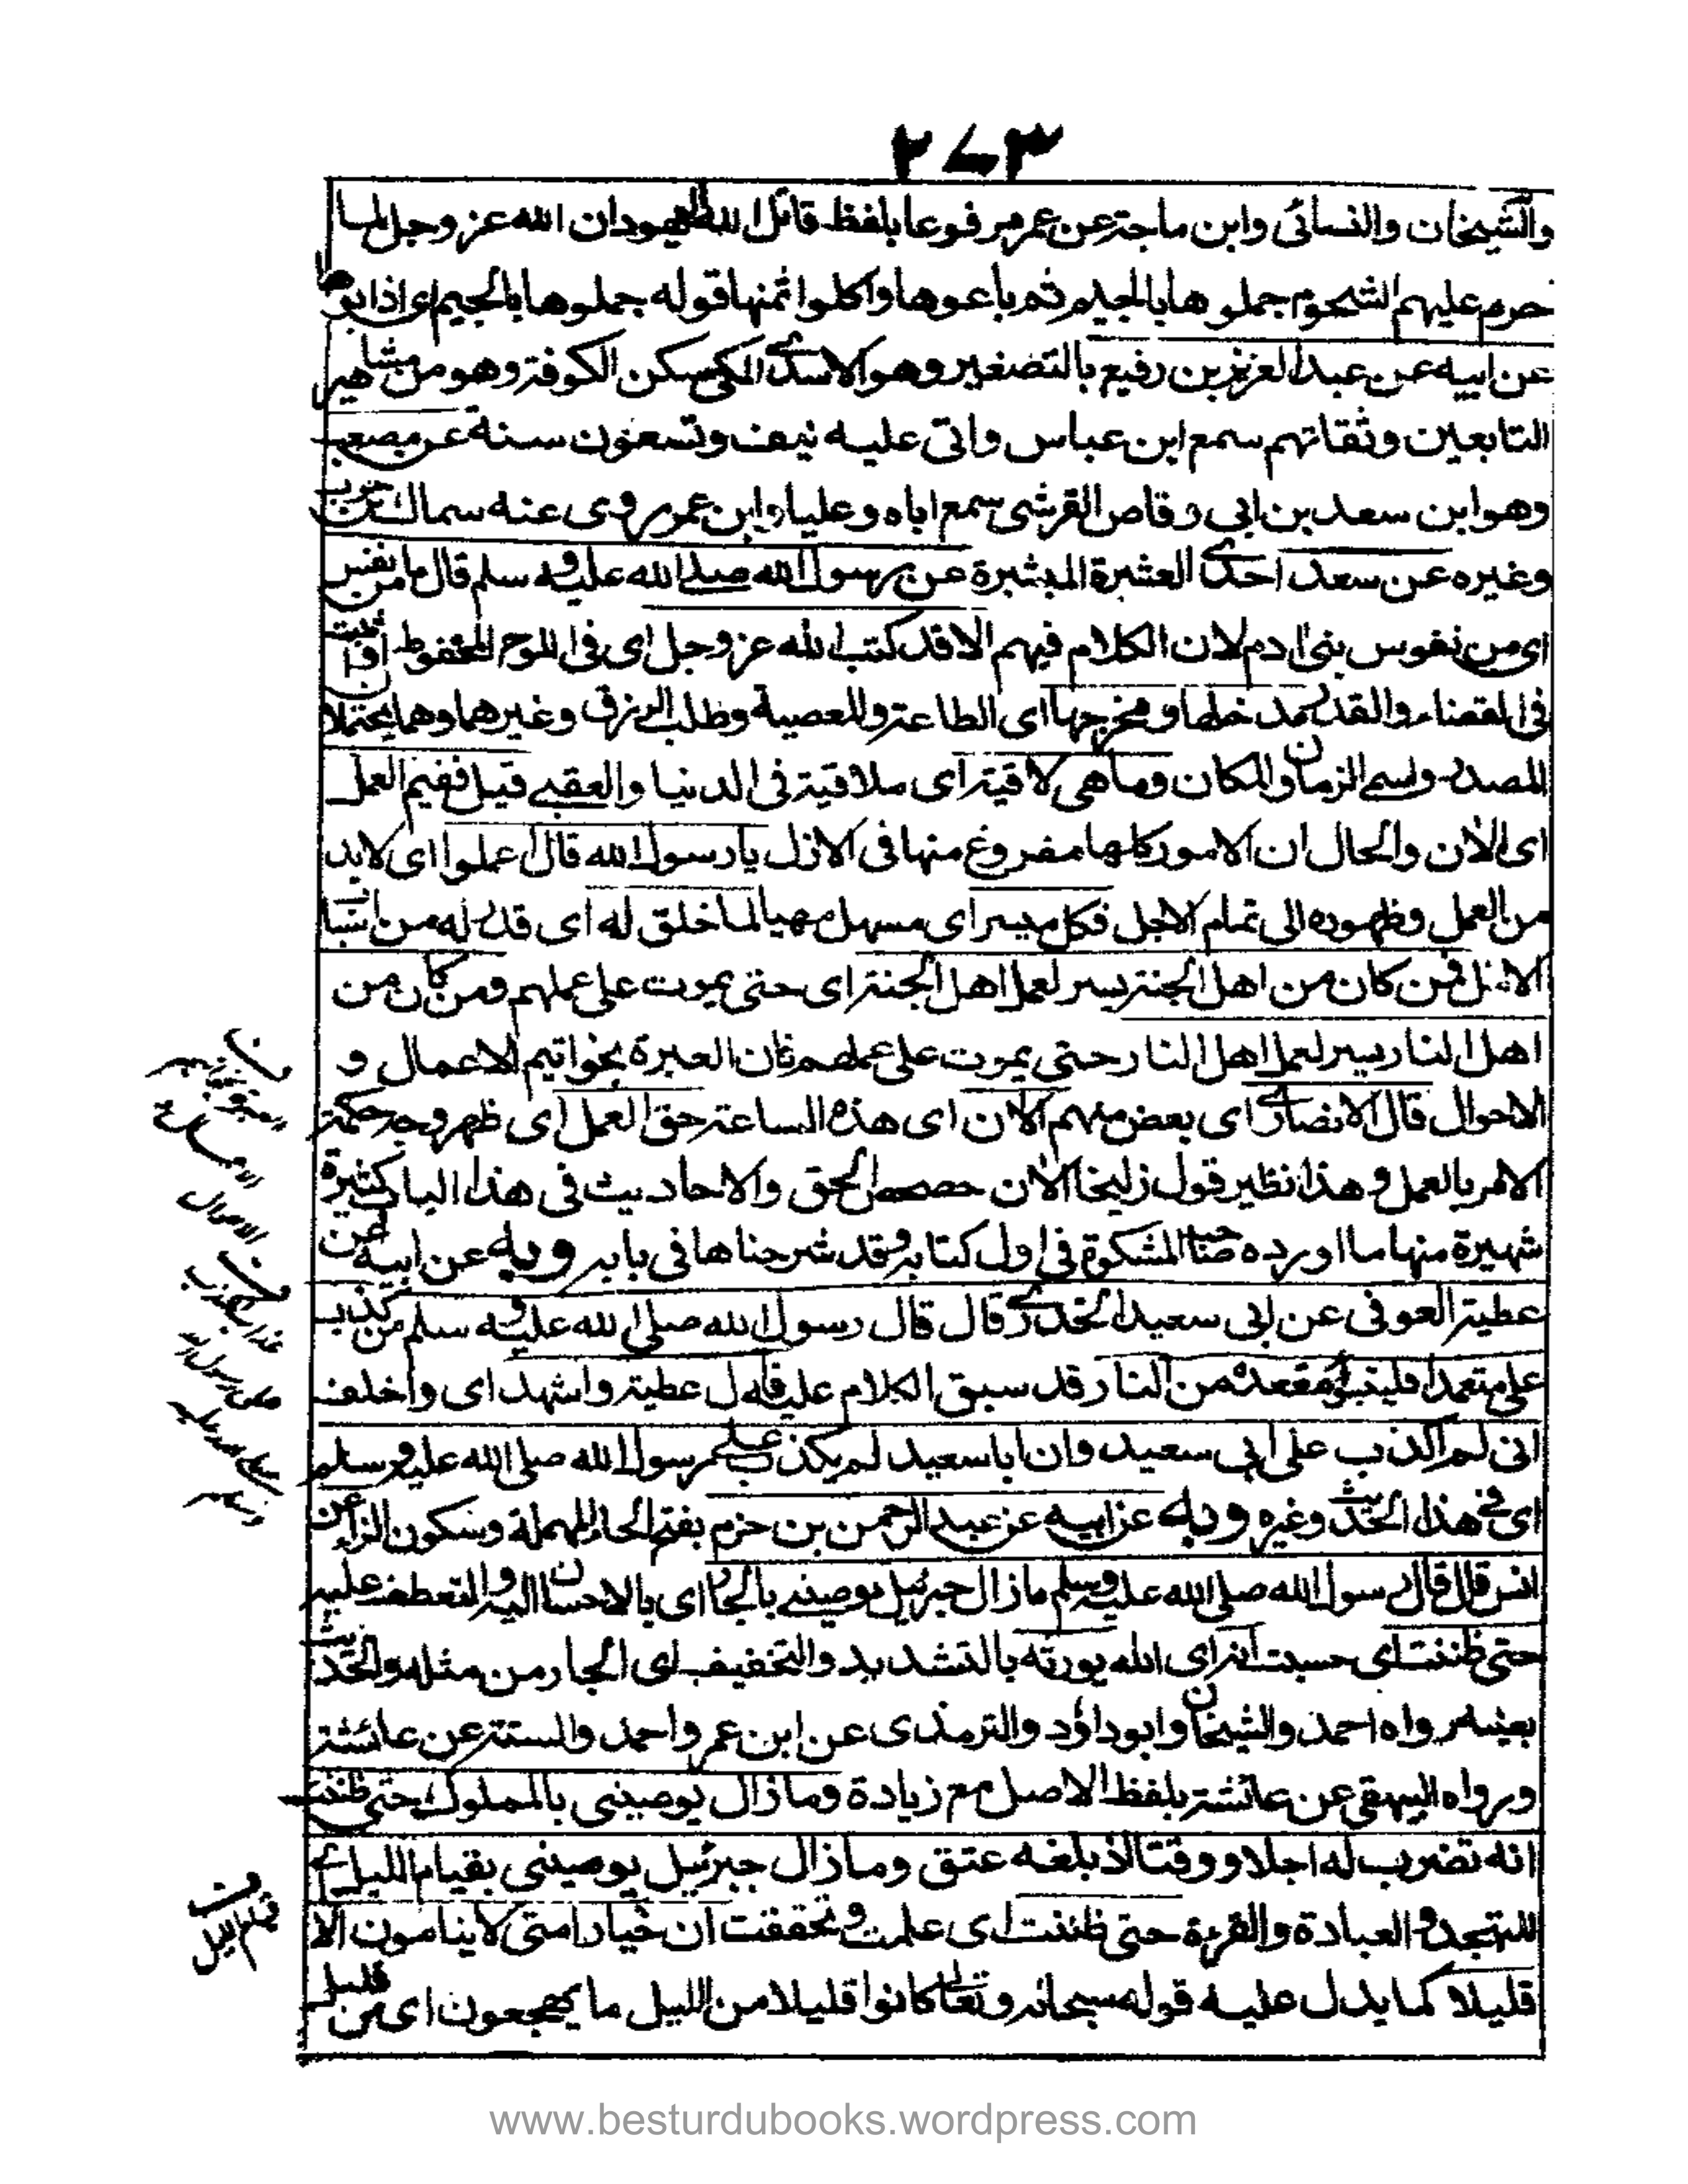 ٢٧٣
والشيخان والنسائى وابن ماجة عن عمر مرفوعا بلفظ قاتل الله اليهود ان الله عز وجل لما
حرم عليهم الشحوم جملوها بالجيم ثم باعوها واكلوا ثمنها قوله جملوها بالجيم اى اذابوها
عن ابيه عن عبد العزيز بن رفيع بالتصغير وهو الاسدى المكى سكن الكوفة وهو من مشاهير
التابعين وثقاتهم سمع ابن عباس واتى عليه نيف وتسعون سنة عن مصعب
وهو ابن سعد بن ابى وقاص القرشى سمع اباه وعليا وابن عمر روى عنه سماك بن حرب
وغيره عن سعد احدى العشرة المبشرة عن رسول الله صلى الله عليه وسلم قال ما من نفس
اى من نفوس بنى ادم لان الكلام فيهم الا قد كتب الله عز وجل اى فى اللوح المحفوظ
فى القضاء والقدر مدخلها ومخرجها اى الطاعة والمعصية وطلب الرزق وغيرهما وهما يحتملا
المصدر واسم الزمان والمكان وما هى لاقية اى ملاقية فى الدنيا والعقبى قيل ففيم العمل
اى الان والحال ان الامور كلها مفروغ منها فى الازل يا رسول الله قال اعملوا اى لابد
من العمل وظهوره الى تمام الاجل فكل ميسر اى مسهل مهيا لما خلق له اى قدر له من
الازل فمن كان من اهل الجنة يسر لعمل اهل الجنة اى حتى يموت على عملهم ومن كان من
اهل النار يسر لعمل اهل النار حتى يموت على عملهم فان العبرة بخواتيم الاعمال و
الاحوال قال الانصارى اى بعض منهم الان اى هذه الساعة حق العمل اى ظهر وجه حكمة
الامر بالعمل وهذا نظير قول زليخا الان حصحص الحق والاحاديث فى هذا الباب كثيرة
شهيرة منها ما اورده صاحب المشكوة فى اول كتابه وقد شرحناها فى بابه وبه عن ابيه عن
عطية العوفى عن ابى سعيد الخدرى قال قال رسول الله صلى الله عليه وسلم من كذب
على متعمدا فليتبوأ مقعده من النار قد سبق الكلام عليه قال عطية واشهد اى واحلف
انى لم اكذب على ابى سعيد وان ابا سعيد لم يكذب على رسول الله صلى الله عليه وسلم
اى فى هذا الحديث وغيره وبه عن ابيه عن عبد الرحمن بن حزم بفتح الحاء المهملة وسكون الزاء عن
انس قال قال رسول الله صلى الله عليه وسلم ما زال جبرئيل يوصينى بالجار اى بالاحسان اليه والتعطف عليه
حتى ظننت اى حسبت انه اى الله يورثه بالتشديد والتخفيف اى الجار من مثله والحديث
بعينه رواه احمد والشيخان وابو داؤد والترمذى عن ابن عمر واحمد والستة عن عائشة
ورواه البيهقى عن عائشة بلفظ الاصل مع زيادة وما زال يوصينى بالمملوك حتى ظننت
انه تضرب له اجلا ووقتا اذا بلغه عتق وما زال جبرئيل يوصينى بقيام الليل اى
للتهجد والعبادة والقرءة حتى ظننت اى علمت وتحققت ان خيار امتى لا ينامون الا
قليلا كما يدل عليه قوله سبحانه وتعالى كانوا قليلا من الليل ما يهجعون اى من قليل
ف
ف
ف
قيام الليل
www.besturdubooks.wordpress.com